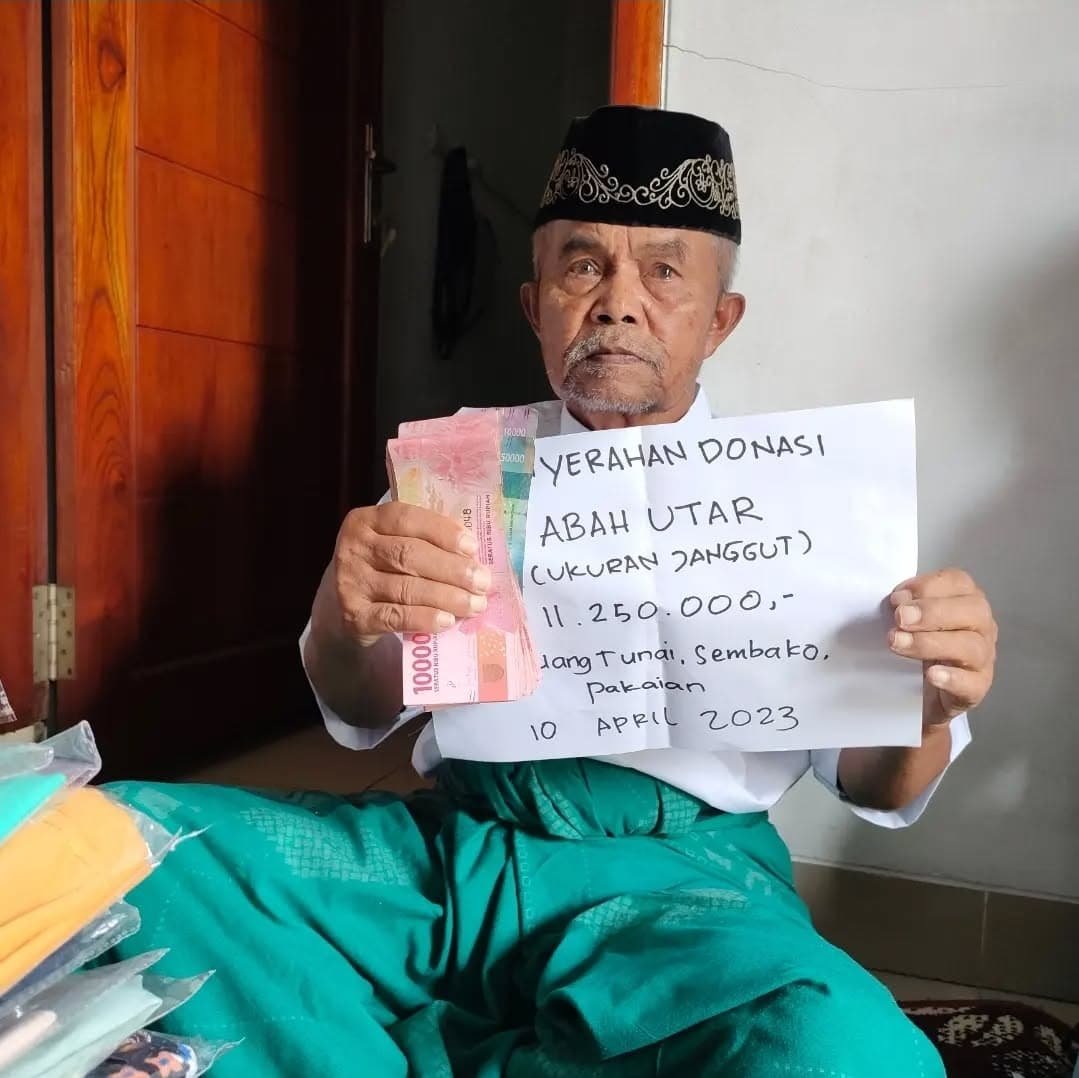 YERAHAN DONASI
ABAH UTAR
(UKURAN JANGGUT)
11.250.000,-
uang Tunai, Sembako,
pakaian
10 APRIL 2023
10000
50000
SERATUS RIBU RUPIAH
10000
SERATUS RIBU RUPIAH